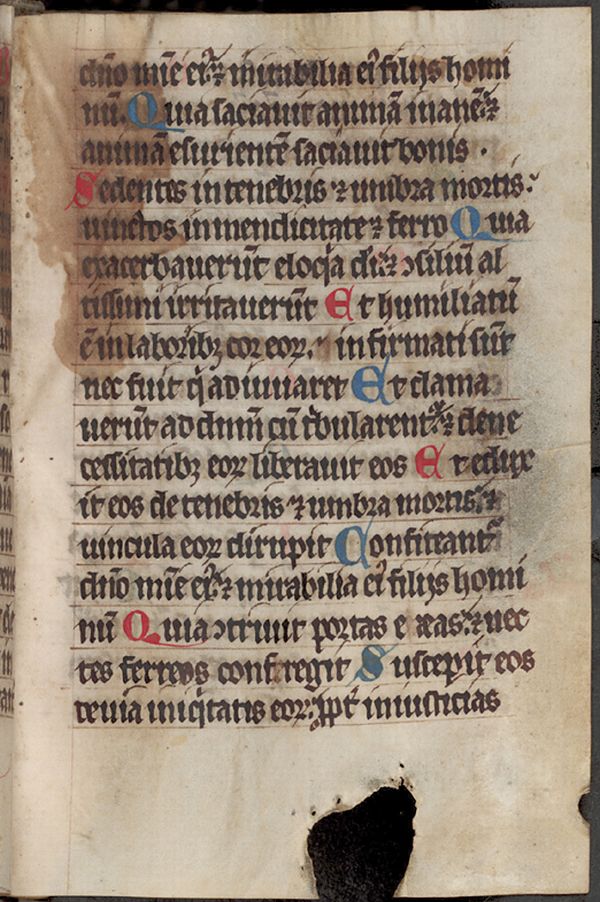 dn̄o mīe ei᷒ ⁊ mirabilia ei᷒ filijs homi
nū. Quia saciauit animā inanē ⁊
animā esurientē saciauit bonis .
Sedentes in tenebris ⁊ umbra mortis:
uinctos in mendicitate ⁊ ferro Quia
exacerbauerūt eloq̄a di ⁊ ↄsiliū al
tissimi irritauerūt Et humiliatū
ē in laboribꝫ cor eoꝝ. infirmati sūt
nec fuit q̄ adiuuaret Et clama
uerūt ad dn̄m cū t̄bularent᷑ ⁊ de ne
cessitatibꝫ eoꝝ liberauit eos Et edux
it eos de tenebris ⁊ umbra mortis. ⁊
uincula eoꝝ dirupit Confiteant᷑
dn̄o mīe ei᷒ ⁊ mirabilia ei᷒ filijs homi
nū Quia ↄtriuit portas ereas. ⁊ uec
tes ferreos confregit Suscepit eos
de uia iniq̄tatis eoꝝ. ꝓpt̄ iniusticias